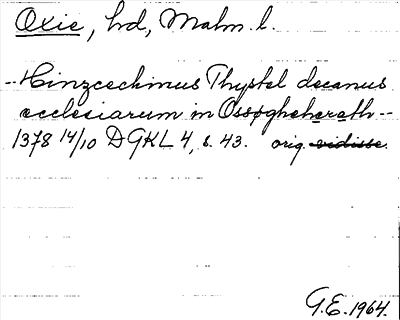 Oxie, hd, Malm. l.
-- Hinzcechinus Thystel decanus
ecclesiarum in Ossøgheheræth --
1378 14/10 DGKL 4, s. 43. orig. vidisse.
G.E. 1964.